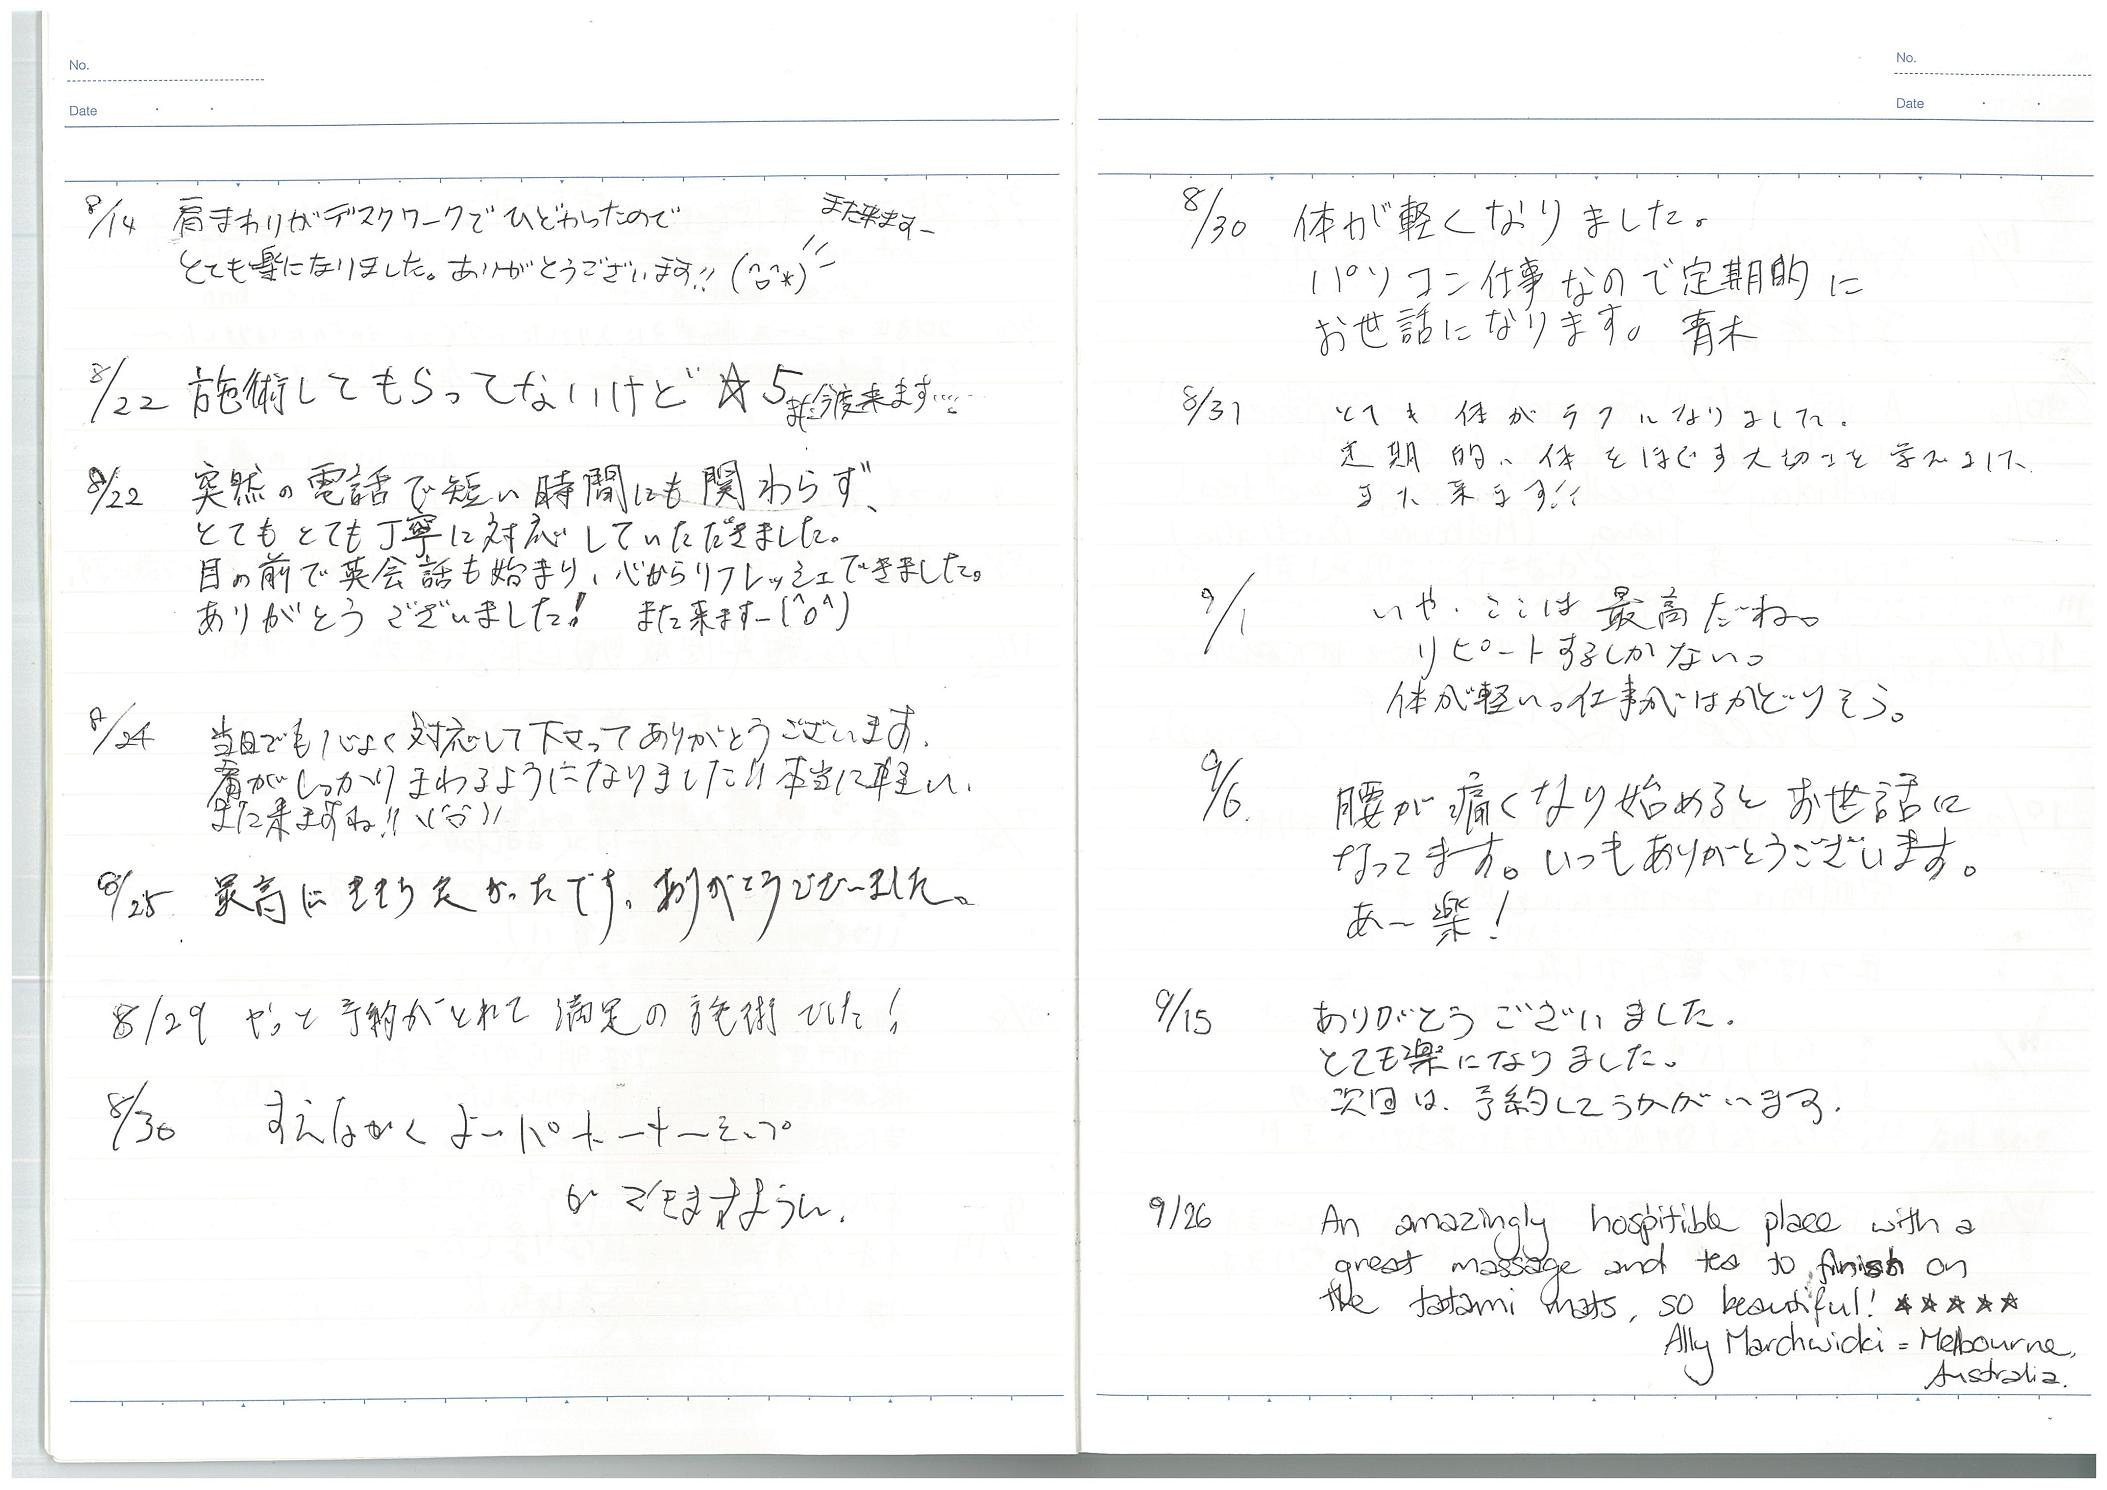 No.
Date
8/14 肩まわりがデスクワークでひどかったので
とても楽になりました。ありがとうございます!! (^o^*)
また来ますー
8/22 施術してもらってないけど ☆5 また今度来ます....。
8/22 突然の電話で短い時間にも関わらず、
とてもとても丁寧に対応していただきました。
目の前で英会話も始まり、心からリフレッシュできました。
ありがとうございました! また来ますー(^o^)
8/24 当日でも心よく対応して下さってありがとうございます.
肩がしっかりまわるようになりました!! 本当に軽い.
また来ますね!!
8/25 最高にきもち良かったです。ありがとうございました。
8/29 やっと予約がとれて 満足の施術でした!
8/30 すえながく よいパートナーシップ
ができますように.
No.
Date
8/30 体が軽くなりました。
パソコン仕事なので定期的に
お世話になります。 青木
8/31 とても体がラクになりました.
定期的に体をほぐす大切さを学びました.
また来ます!!
9/1 いや、ここは最高だね。
リピートするしかない。
体が軽い。仕事がはかどりそう。
9/6. 腰が痛くなり始めるとお世話に
なってます。いつもありがとうございます。
あ～楽!
9/15 ありがとうございました.
とても楽になりました.
次回は、予約してうかがいます.
9/26 An amazingly hospitible place with a
great massage and tea to finish on
the tatami mats, so beautiful! ☆☆☆☆☆
Ally Marchwicki = Melbourne,
Australia.